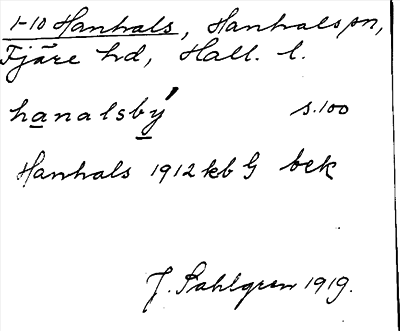 1-10 Hanhals, Hanhals sn,
Fjäre hd, Hall. l.
hanalsbý s. 100
Hanhals 1912 kb G bek
J. Sahlgren 1919.